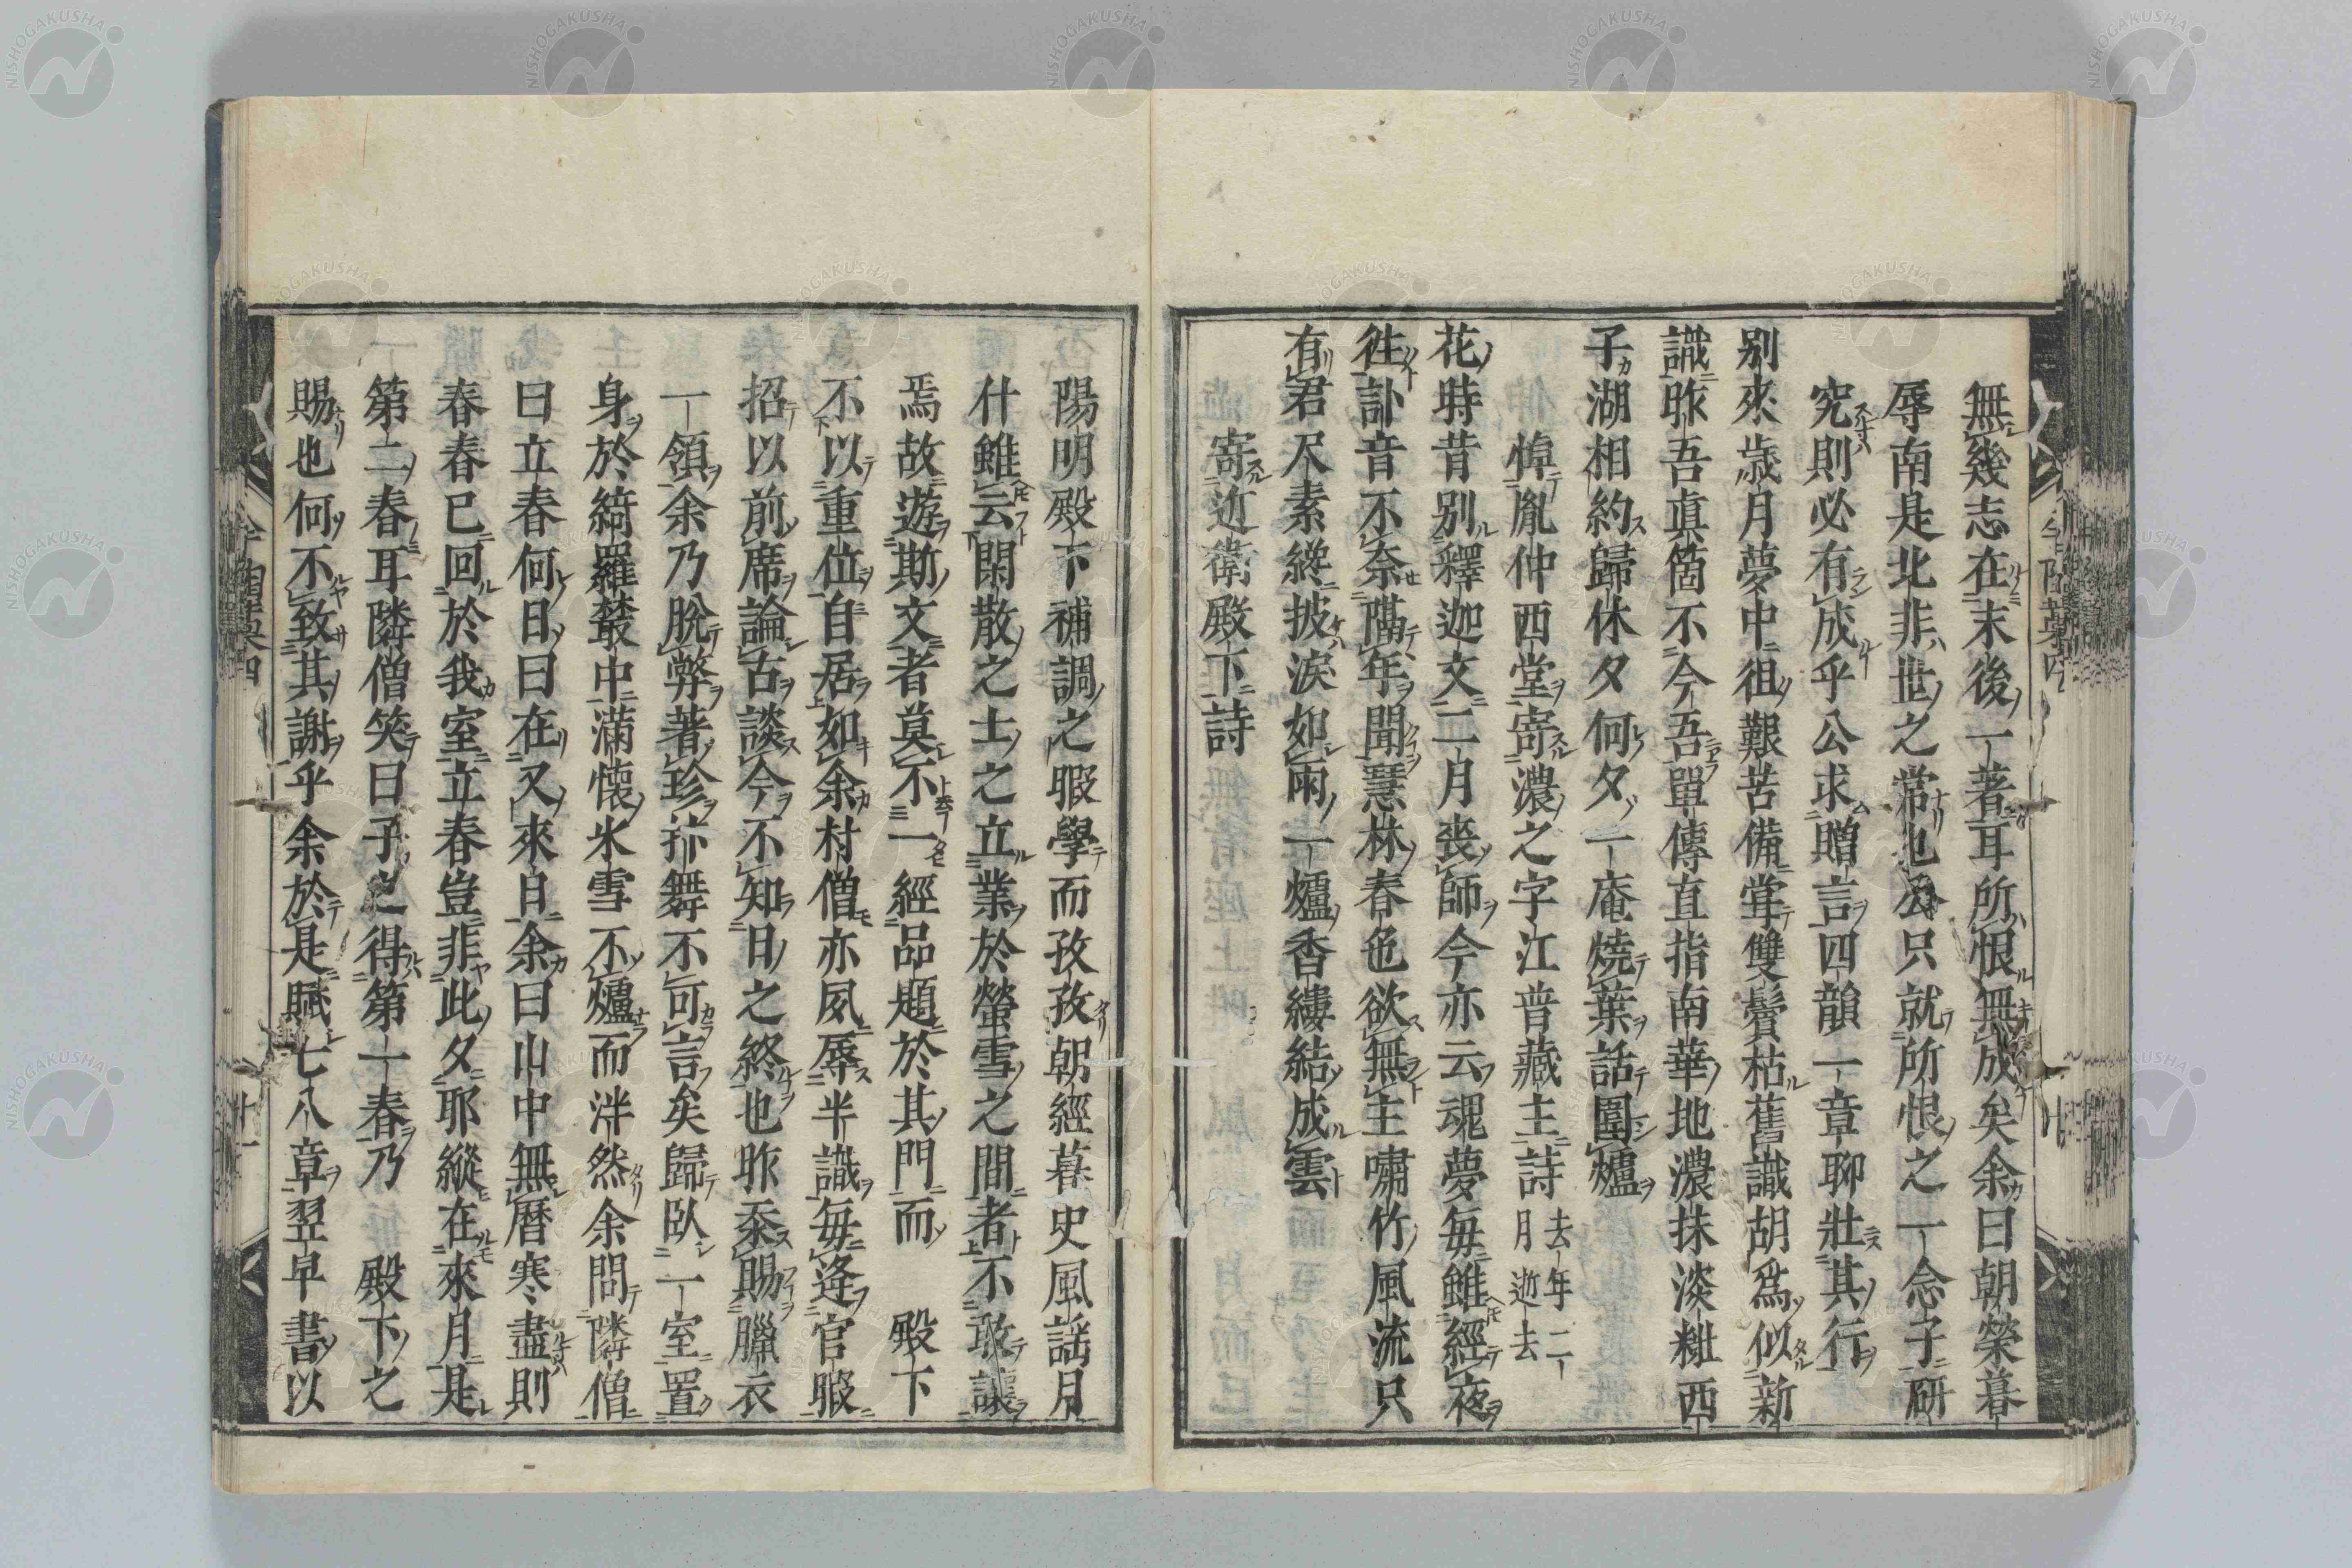 無幾志在末後一著耳所恨無成矣余曰朝榮暮
辱南是北非世之常也公只就所恨之一念子研
究則必有成乎公求贈言四韻一章聊壯其行
別來歲月夢中徂艱苦備甞雙鬢枯舊識胡爲似新
識昨吾眞箇不今吾單傳直指南華地濃抹淡粧西
子湖相約歸休夕何夕一庵燒葉話圍爐
悼胤仲西堂寄濃之字江普藏主詩
去年二
月逝去
花時昔別釋迦文二月喪師今亦云魂夢每雖經夜
徃訃音不奈隔年聞慧林春色欲無主嘯竹風流只
有君尺素纔披淚如雨一爐香縷結成雲
寄近衛殿下詩
陽明殿下補調之暇學而孜孜朝經暮史風謡月
什雖云閑散之士之立業於螢雪之間者不敢讓
焉故遊斯文者莫不一經品題於其門而 殿下
不以重位自居如余村僧亦夙辱半識每逢官暇
招以前席論古談今不知日之終也昨忝賜臘衣
一領余乃脫弊著珍抃舞不可言矣歸臥一室置
身於綺羅叢中滿懷氷雪不爐而泮然余問隣僧
曰立春何日曰在又來日余曰山中無曆寒盡則
春春已回於我室立春豈非此夕耶縱在來月是
第二春耳隣僧笑曰子之得第一春乃 殿下之
賜也何不致其謝乎余於是賦七八章翌早書以
十一
NISHOGAKUSHA